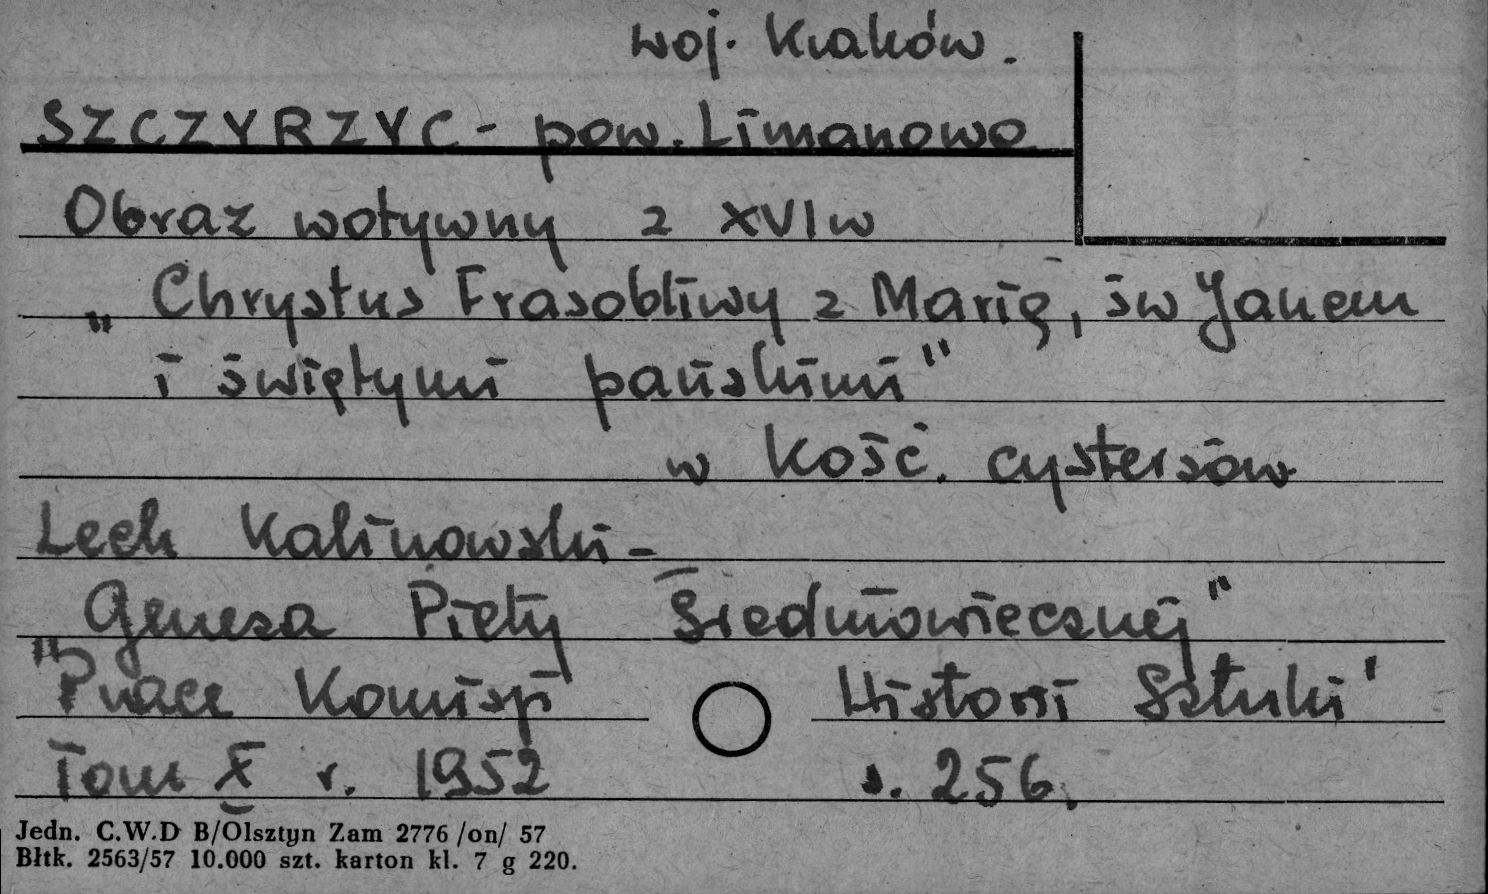 woj. Kraków.
SZCZYRZYC - pow. Limanowa
Obraz wotywny z XVI w
„Chrystus Frasobliwy z Marią, św Janem
i świętymi pańskimi"
w kośc. cystersów
Lech Kalinowski -
„Geneza Piety Średniowiecznej"
"Prace Komisji Historii Sztuki"
Tom X r. 1952 s. 256.
Jedn. C.W.D B/Olsztyn Zam 2776 /on/ 57
Błtk. 2563/57 10.000 szt. karton kl. 7 g 220.